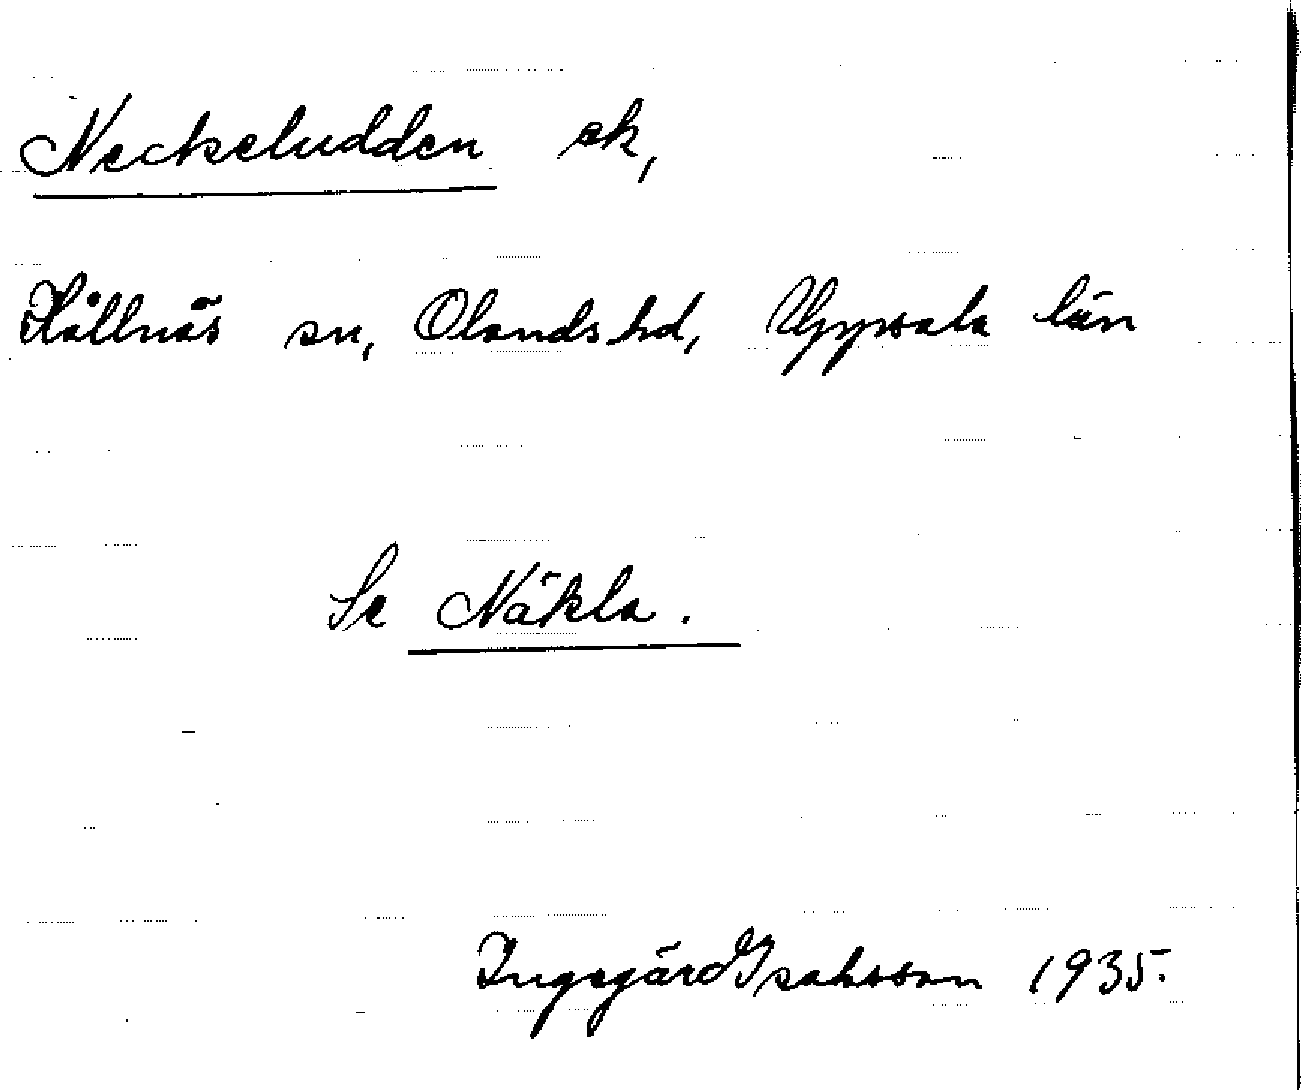 Neckeludden sk,
Hållnäs sn, Olands hd, Uppsala län
Se Näkla.
Ingegärd Isaksson 1935.